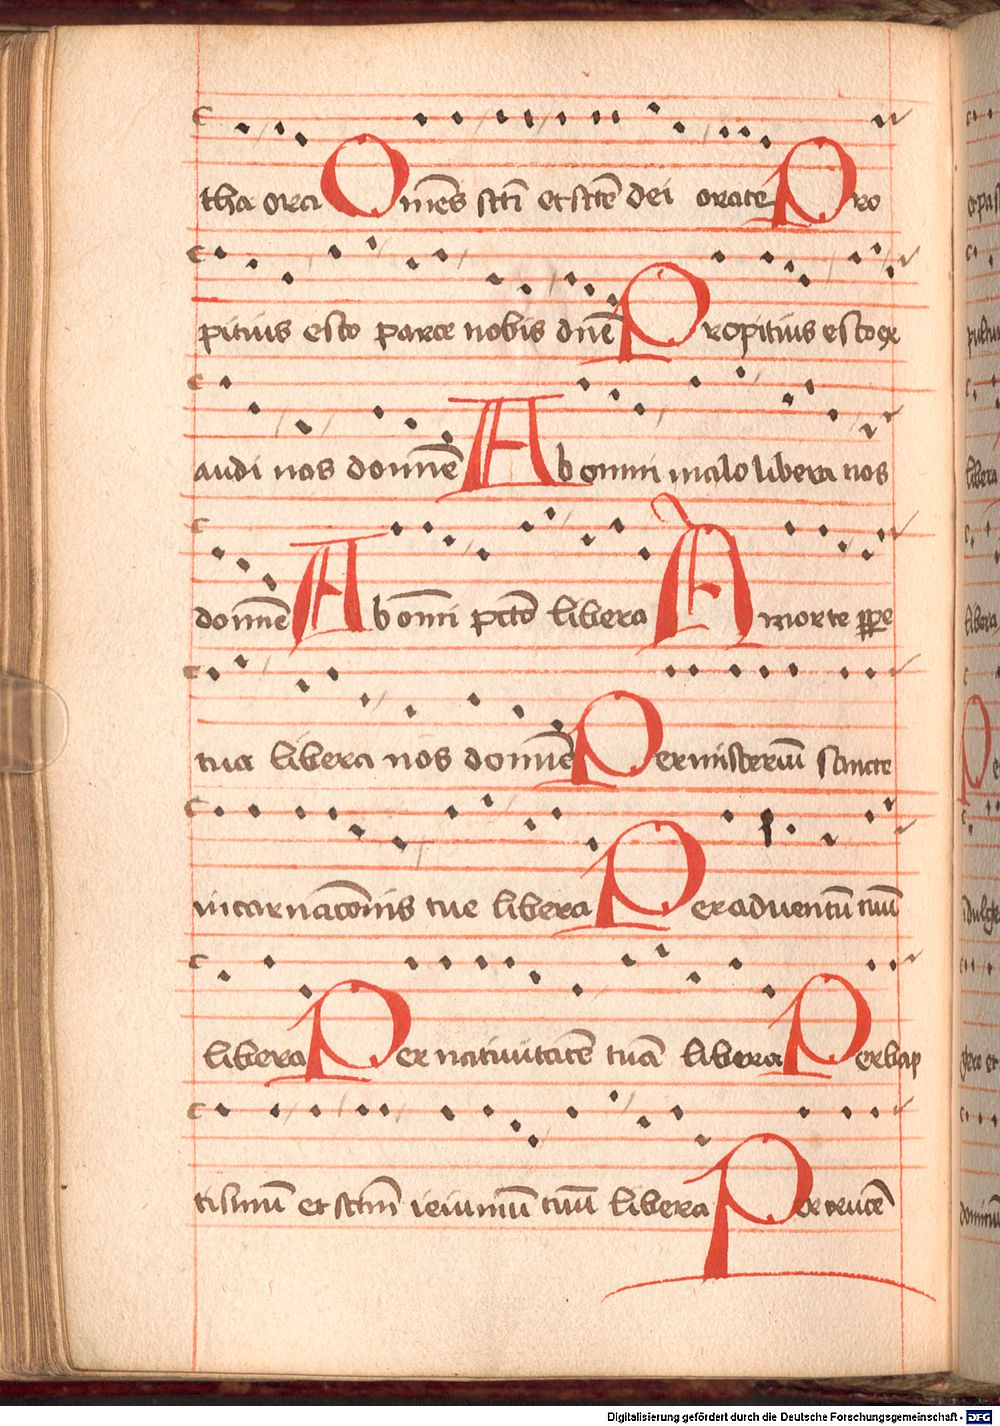 tha ora Omēs sctī et sctē dei orate Pro
pitius esto parce nobis dnē Propitius esto ex
audi nos domīe Ab omni malo libera nos
domīe Ab omī pctō libera A morte ppe
tua libera nos domīe Per misteriū sancte
incarnacōnis tue libera Per aduentū tuū
libera Per natiuitatē tuā libera Per bap
tismū et sctm̄ ieiuniū tuū libera Per crucē
Digitalisierung gefördert durch die Deutsche Forschungsgemeinschaft - DFG